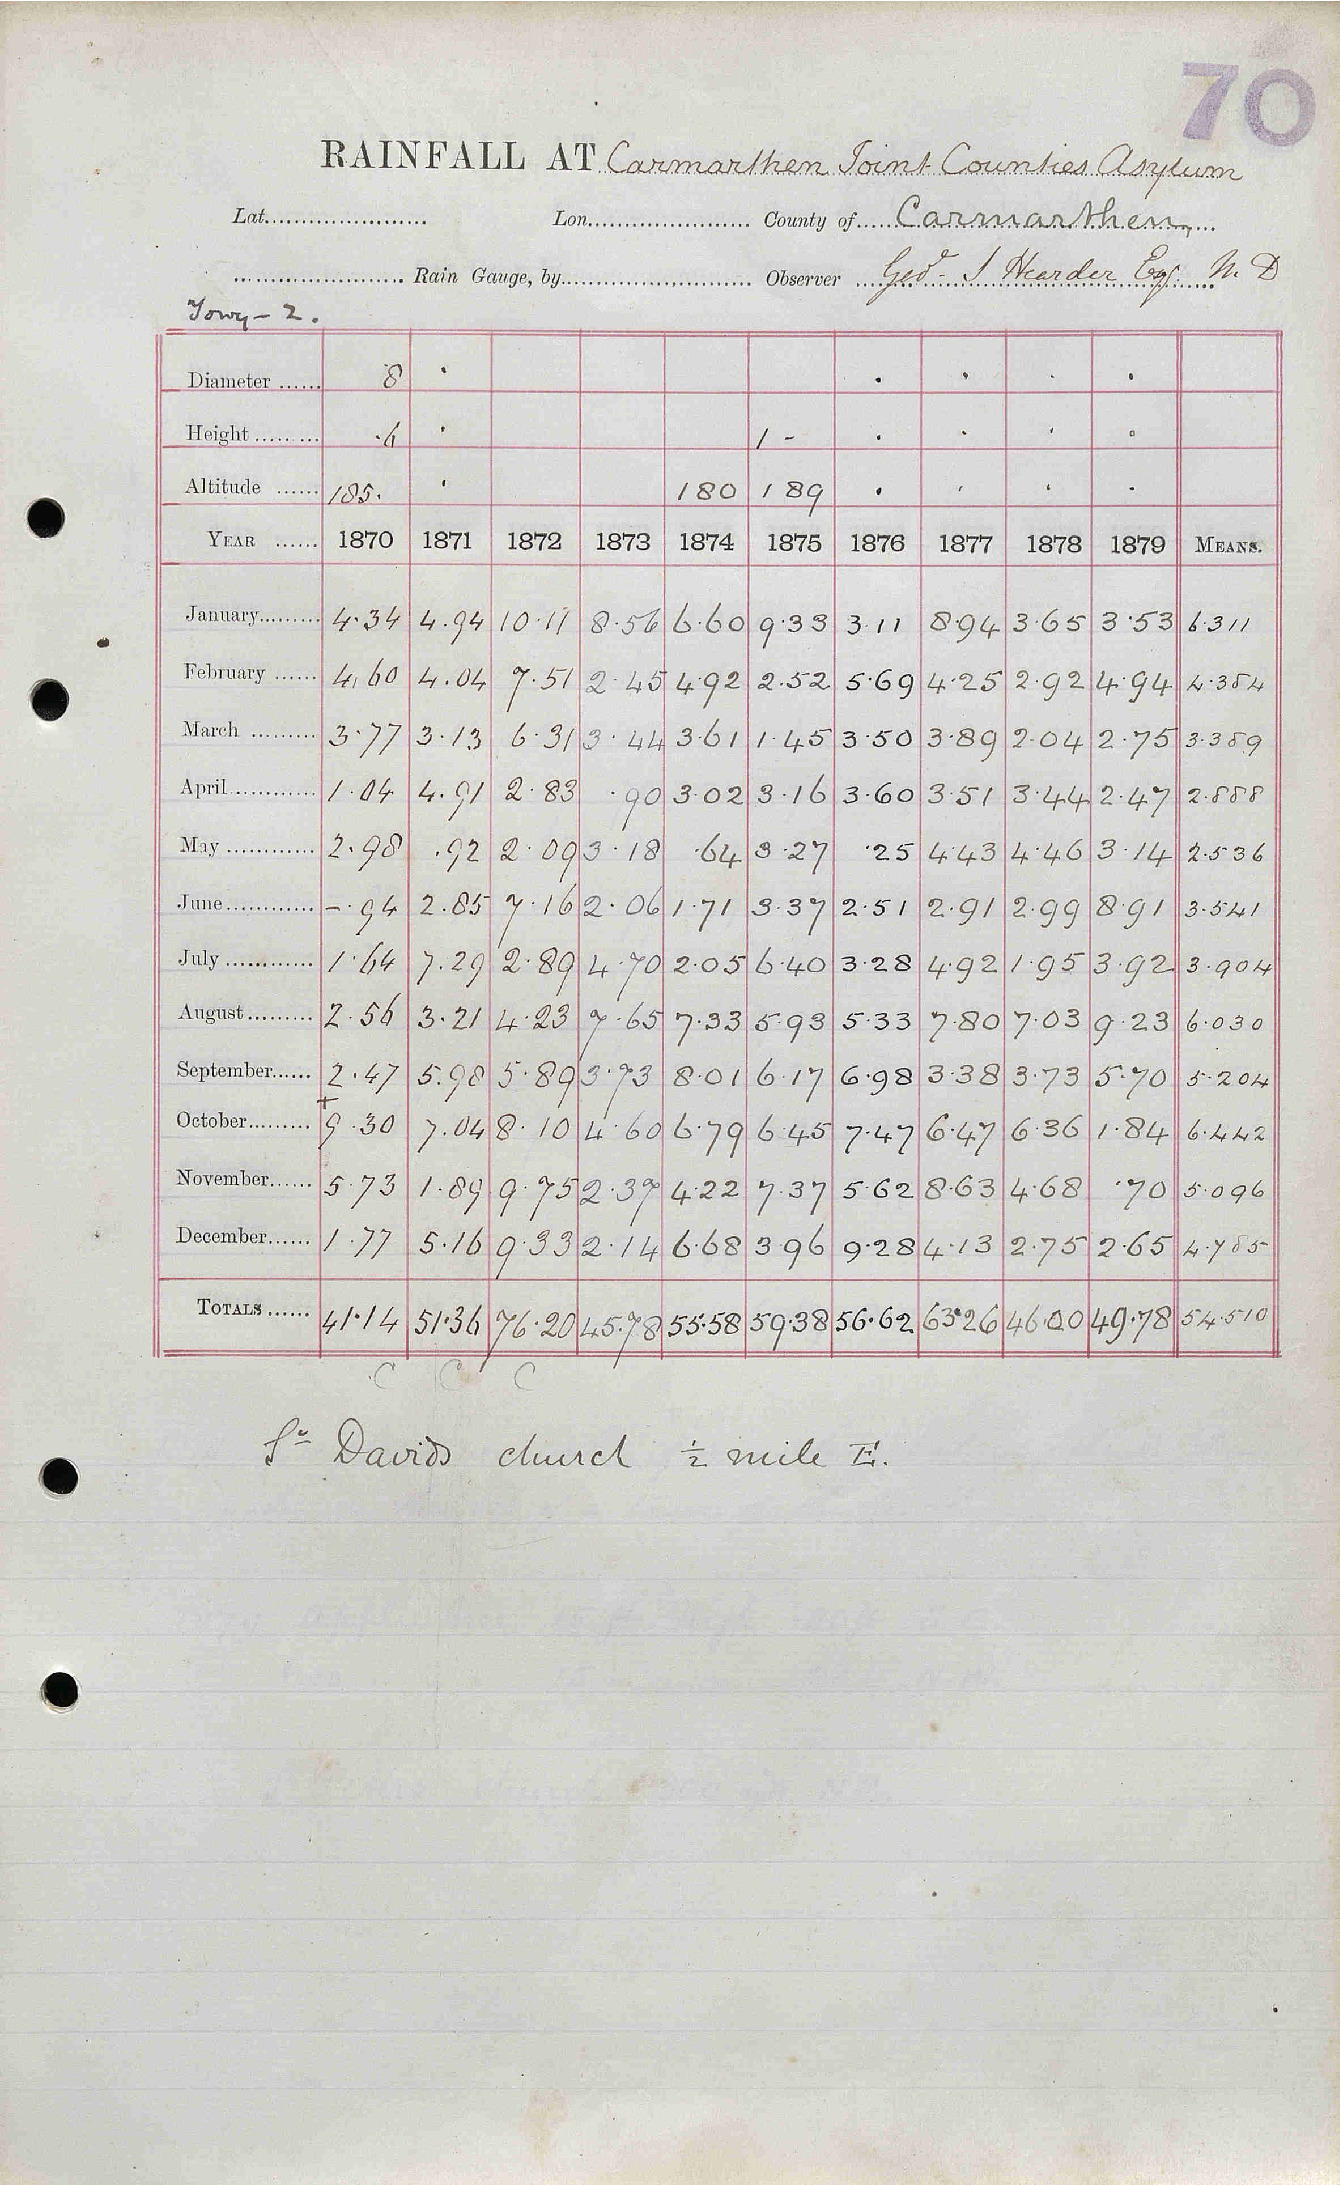 70
RAINFALL AT Carmarthen Joint Counties Asylum
Lat. Lon. County of Carmarthen
Rain Gauge, by Observer Geo. J Hearder Esq. M. D
Towy - 2.
Diameter 8
Height .6 1 -
Altitude 185. 180 189
YEAR 1870 1871 1872 1873 1874 1875 1876 1877 1878 1879 MEANS.
January 4.34 4.94 10.11 8.56 6.60 9.33 3.11 8.94 3.65 3.53 6.311
February 4.60 4.04 7.51 2.45 4.92 2.52 5.69 4.25 2.92 4.94 4.384
March 3.77 3.13 6.31 3.44 3.61 1.45 3.50 3.89 2.04 2.75 3.389
April 1.04 4.91 2.83 .90 3.02 3.16 3.60 3.51 3.44 2.47 2.888
May 2.98 .92 2.09 3.18 .64 3.27 .25 4.43 4.46 3.14 2.536
June -.94 2.85 7.16 2.06 1.71 3.37 2.51 2.91 2.99 8.91 3.541
July 1.64 7.29 2.89 4.70 2.05 6.40 3.28 4.92 1.95 3.92 3.904
August 2.56 3.21 4.23 7.65 7.33 5.93 5.33 7.80 7.03 9.23 6.030
September 2.47 5.98 5.89 3.73 8.01 6.17 6.98 3.38 3.73 5.70 5.204
October 9.30 7.04 8.10 4.60 6.79 6.45 7.47 6.47 6.36 1.84 6.442
November 5.73 1.89 9.75 2.37 4.22 7.37 5.62 8.63 4.68 .70 5.096
December 1.77 5.16 9.33 2.14 6.68 3.96 9.28 4.13 2.75 2.65 4.785
TOTALS 41.14 51.36 76.20 45.78 55.58 59.38 56.62 63.26 46.00 49.78 54.510
C C C
St Davids church 1/2 mile E.